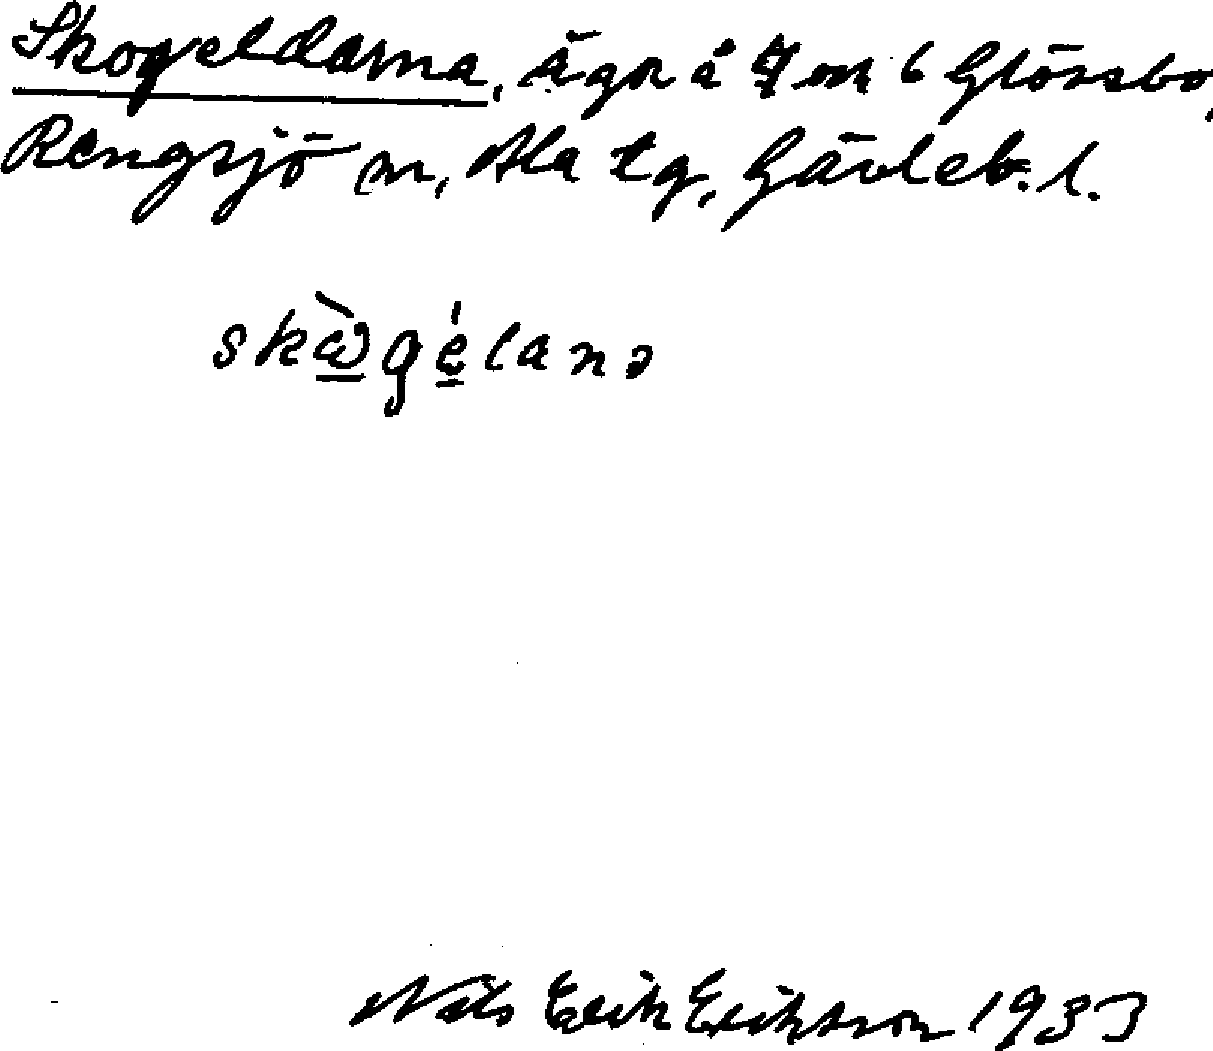 Skogeldarna, ägor å 4 om 6 Glössbo,
Rengsjö sn, Ala tg, Gävleb. l.
skὼgélanə
Nils Erik Eriksson 1933